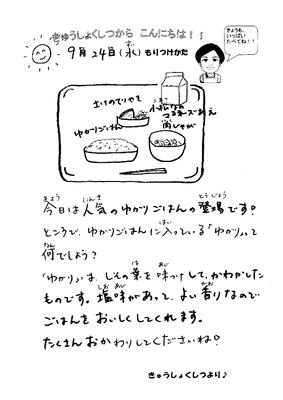 きゅうしょくしつから こんにちは！！
きょうも、
いっぱい
たべてね！！
9月24日(水) もりつけかた
さけのてりやき
小松なの
マヨネーズあえ
ゆかりごはん
肉じゃが
今日は人気のゆかりごはんの登場です。
ところで、ゆかりごはんに入っている「ゆかり」って
何でしょう？
「ゆかり」は、しその葉を味つけして、かわかした
ものです。塩味があって、よい香りなので
ごはんをおいしくしてくれます。
たくさんおかわりしてくださいね！
きゅうしょくしつより♪